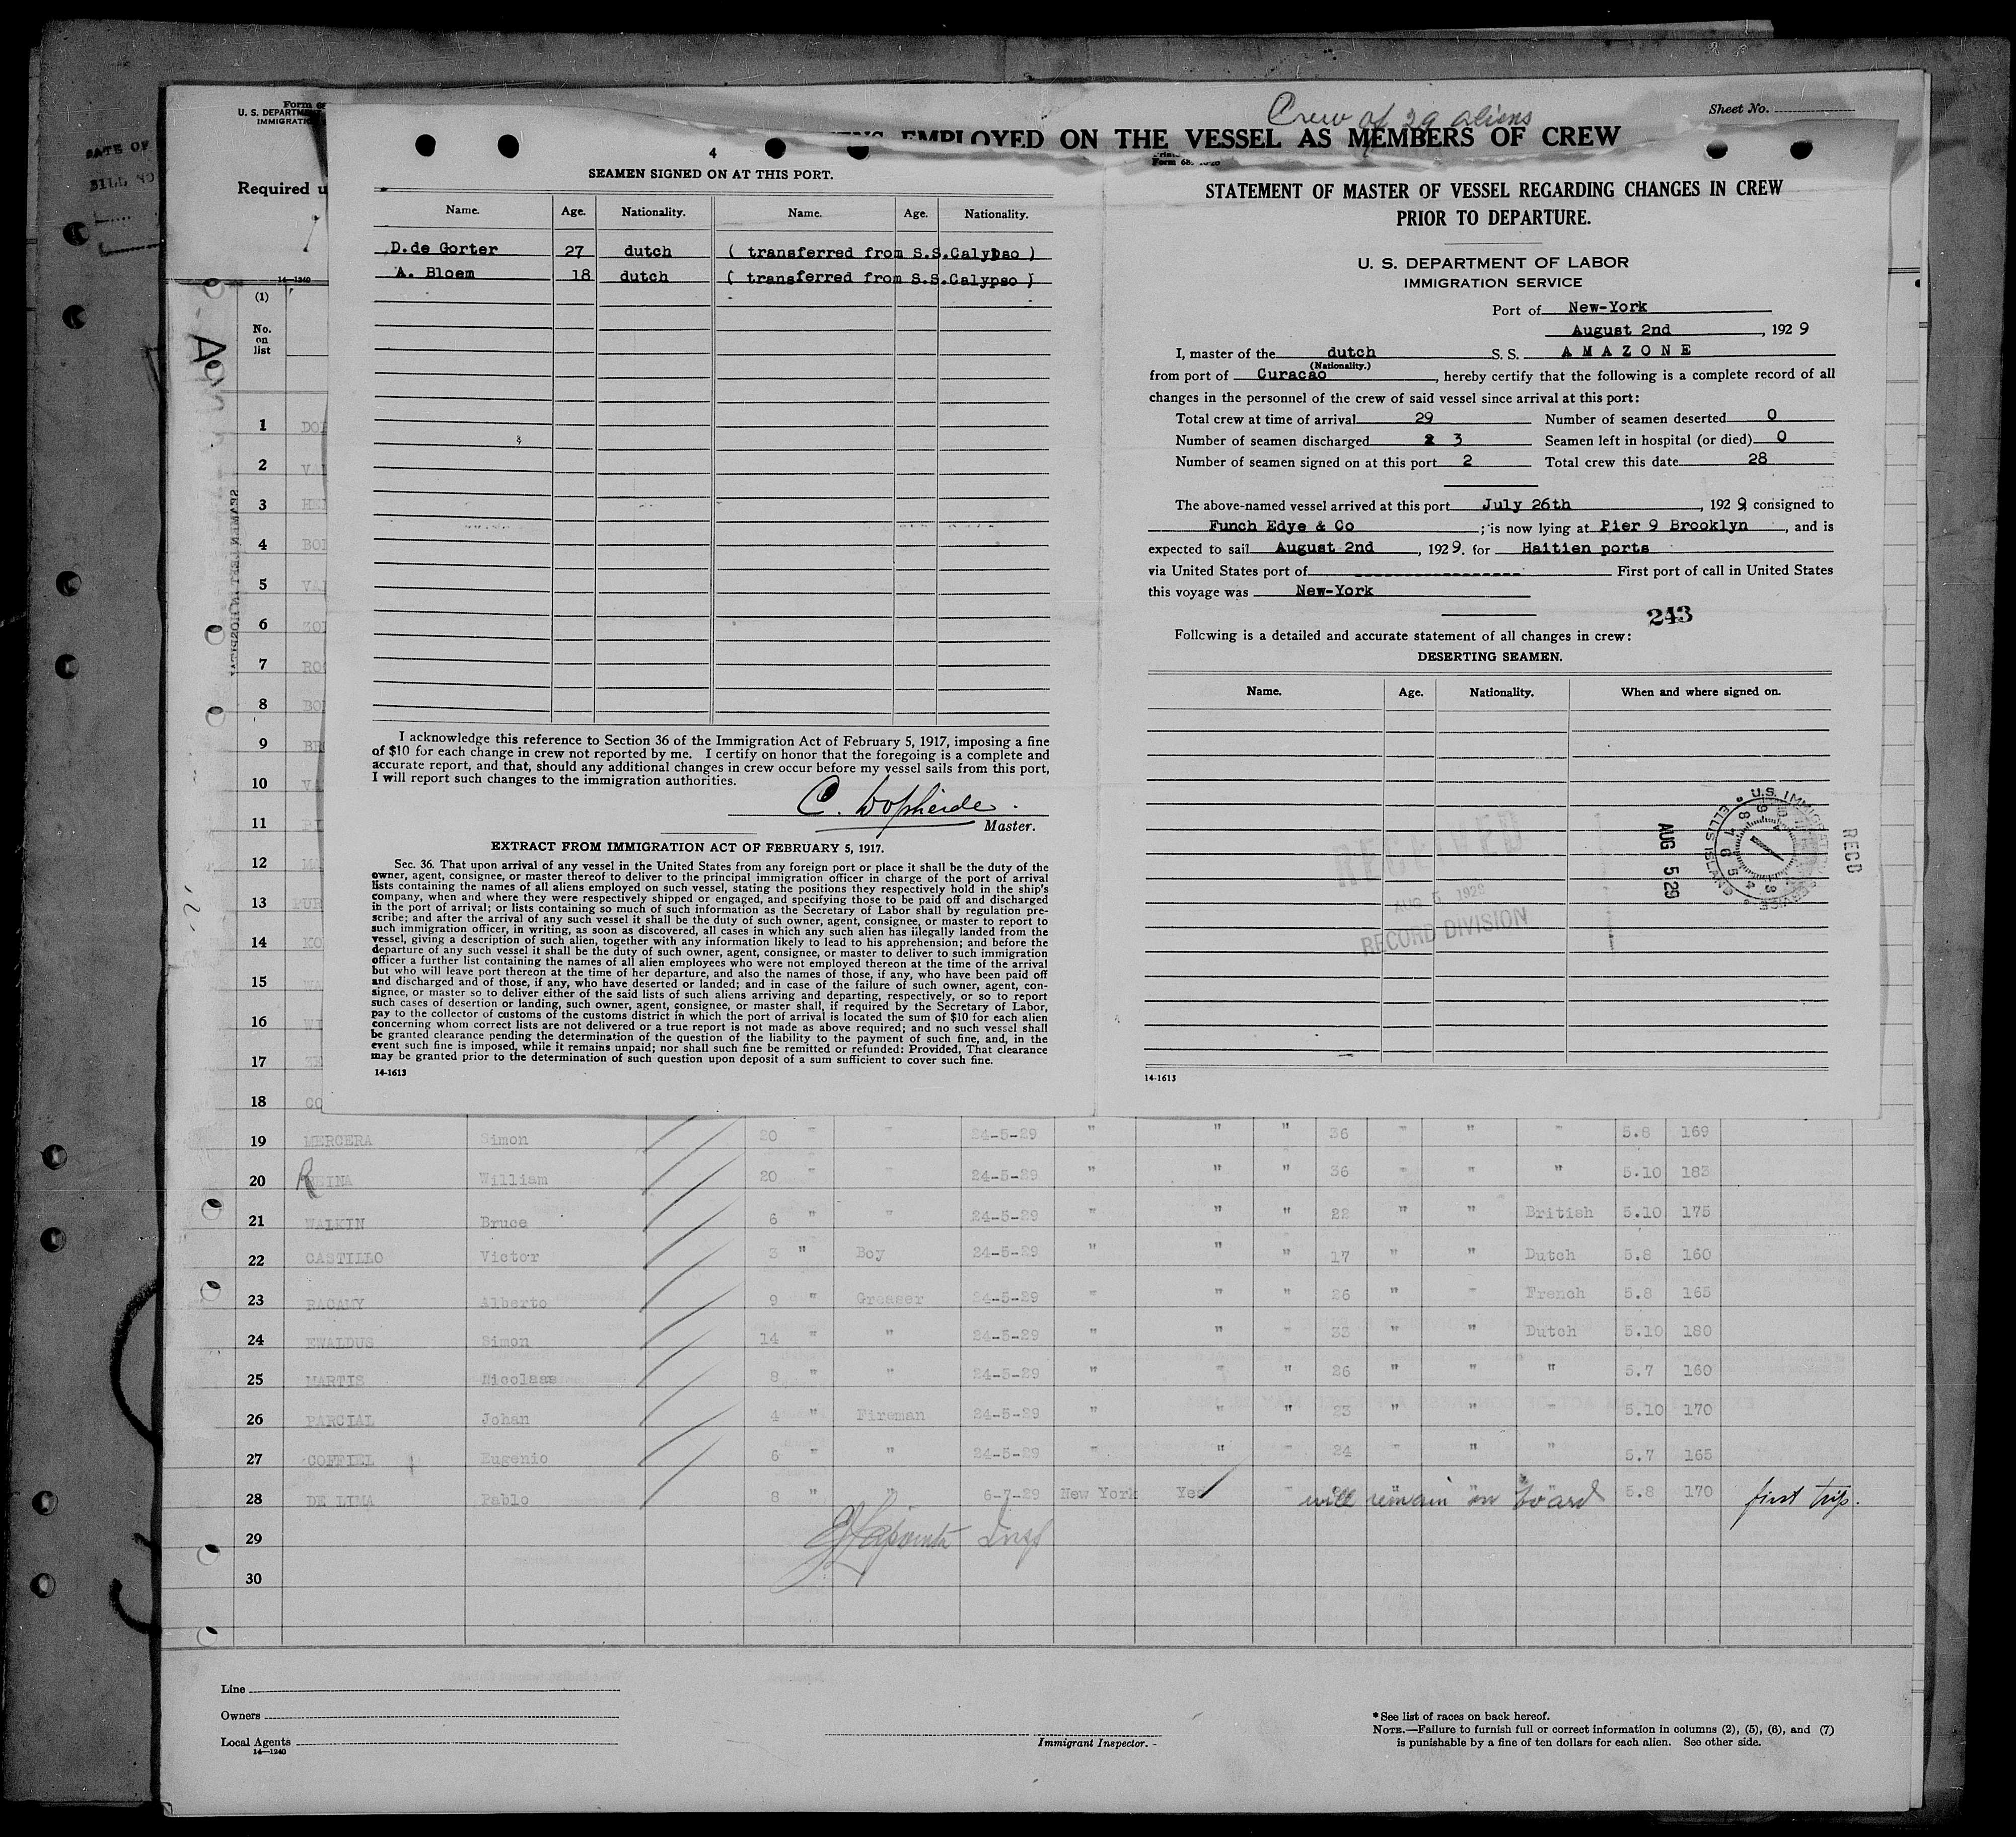 Form 68
U. S. DEPARTM
IMMIGRATIO
Required u
Crew of 29 aliens
Sheet No.
EMPLOYED ON THE VESSEL AS MEMBERS OF CREW
4
SEAMEN SIGNED ON AT THIS PORT.
Name. Age. Nationality. Name. Age. Nationality.
D.de Gorter 27 dutch ( transferred from S.S.Calypso )
A. Bloem 18 dutch ( transferred from S.S.Calypso )
I acknowledge this reference to Section 36 of the Immigration Act of February 5, 1917, imposing a fine
of $10 for each change in crew not reported by me. I certify on honor that the foregoing is a complete and
accurate report, and that, should any additional changes in crew occur before my vessel sails from this port,
I will report such changes to the immigration authorities.
Master.
EXTRACT FROM IMMIGRATION ACT OF FEBRUARY 5, 1917.
Sec. 36. That upon arrival of any vessel in the United States from any foreign port or place it shall be the duty of the
owner, agent, consignee, or master thereof to deliver to the principal immigration officer in charge of the port of arrival
lists containing the names of all aliens employed on such vessel, stating the positions they respectively hold in the ship's
company, when and where they were respectively shipped or engaged, and specifying those to be paid off and discharged
in the port of arrival; or lists containing so much of such information as the Secretary of Labor shall by regulation pre-
scribe; and after the arrival of any such vessel it shall be the duty of such owner, agent, consignee, or master to report to
such immigration officer, in writing, as soon as discovered, all cases in which any such alien has illegally landed from the
vessel, giving a description of such alien, together with any information likely to lead to his apprehension; and before the
departure of any such vessel it shall be the duty of such owner, agent, consignee, or master to deliver to such immigration
officer a further list containing the names of all alien employees who were not employed thereon at the time of the arrival
but who will leave port thereon at the time of her departure, and also the names of those, if any, who have been paid off
and discharged and of those, if any, who have deserted or landed; and in case of the failure of such owner, agent, con-
signee, or master so to deliver either of the said lists of such aliens arriving and departing, respectively, or so to report
such cases of desertion or landing, such owner, agent, consignee, or master shall, if required by the Secretary of Labor,
pay to the collector of customs of the customs district in which the port of arrival is located the sum of $10 for each alien
concerning whom correct lists are not delivered or a true report is not made as above required; and no such vessel shall
be granted clearance pending the determination of the question of the liability to the payment of such fine, and, in the
event such fine is imposed, while it remains unpaid; nor shall such fine be remitted or refunded: Provided, That clearance
may be granted prior to the determination of such question upon deposit of a sum sufficient to cover such fine.
14-1613
STATEMENT OF MASTER OF VESSEL REGARDING CHANGES IN CREW
PRIOR TO DEPARTURE.
U. S. DEPARTMENT OF LABOR
IMMIGRATION SERVICE
Port of New-York
August 2nd, 1929
I, master of the dutch S. S. AMAZONE
(Nationality.)
from port of Curacao, hereby certify that the following is a complete record of all
changes in the personnel of the crew of said vessel since arrival at this port:
Total crew at time of arrival 29 Number of seamen deserted 0
Number of seamen discharged 3 Seamen left in hospital (or died) 0
Number of seamen signed on at this port 2 Total crew this date 28
The above-named vessel arrived at this port July 26th, 1929, consigned to
Funch Edye & Co; is now lying at Pier 9 Brooklyn, and is
expected to sail August 2nd, 1929. for Haitien ports
via United States port of First port of call in United States
this voyage was New-York
243
Following is a detailed and accurate statement of all changes in crew:
DESERTING SEAMEN.
Name. Age. Nationality. When and where signed on.
RECEIVED
AUG 5 1929
RECORD DIVISION
AUG 5 29
U.S. IMMIGRATION SERVICE ELLIS ISLAND
RECD
14-1613
14-1240
(1)
No. on list
1 DO
2 VA
3 HE
4 BO
5 VA
6
7 RO
8 BO
9 BR
10 VA
11
12 MA
13 PUR
14 KO
15 WA
16 WI
17
18 CO
19 MERCERA Simon 20 " " 24-5-29 " " " 36 " " " 5.8 169
20 SINA William 20 " " 24-5-29 " " " 36 " " " 5.10 183
21 WALKIN Bruce 6 " " 24-5-29 " " " 22 " " British 5.10 175
22 CASTILLO Victor 3 " Boy 24-5-29 " " " 17 " " Dutch 5.8 160
23 RACAMY Alberto 9 " Greaser 24-5-29 " " " 26 " " French 5.8 165
24 EWALDUS Simon 14 " " 24-5-29 " " " 33 " " Dutch 5.10 180
25 MARTIS Nicolaas 8 " " 24-5-29 " " " 26 " " " 5.7 160
26 PARCIAL Johan 4 " Fireman 24-5-29 " " " 23 " " " 5.10 170
27 COFFIEL Eugenio 6 " " 24-5-29 " " " 24 " " " 5.7 165
28 DE LIMA Pablo 8 " " 6-7-29 New York Yes " will remain on board 5.8 170 first trip.
29
30
Line
Owners
Local Agents
14-1240
Immigrant Inspector.
*See list of races on back hereof.
NOTE.—Failure to furnish full or correct information in columns (2), (5), (6), and (7)
is punishable by a fine of ten dollars for each alien. See other side.